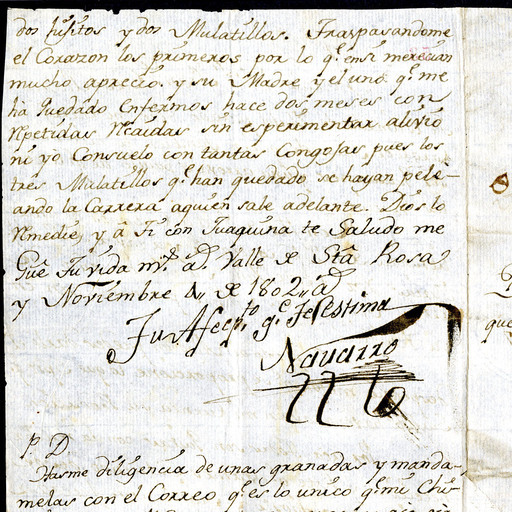 dos hijitos y dos Mulatillos. Traspasandome
el Corazon los primeros por lo q.e en si merecian
mucho aprecio. y su Madre y el uno q.e me
ha quedado Enfermos hace dos meses con
repetidas recaidas sin esperimentar alivio
ni yo Consuelo con tantas Congojas pues los
tres Mulatillos q.e han quedado se hayan pele-
ando la Carrera aquien sale adelante. Dios lo
remedie, y â Ti con Juaquina te Saludo me
Gûe tu vida m.s a.s Valle de Stâ Rosa
y Noviembre 4,, de 1802,, a.s
Tu Afec.to q.e Te estima
Navarro
P. D.
Hasme diligencia de unas granadas y manda-
melas con el Correo q.e es lo unico q.e mi Chi-
que